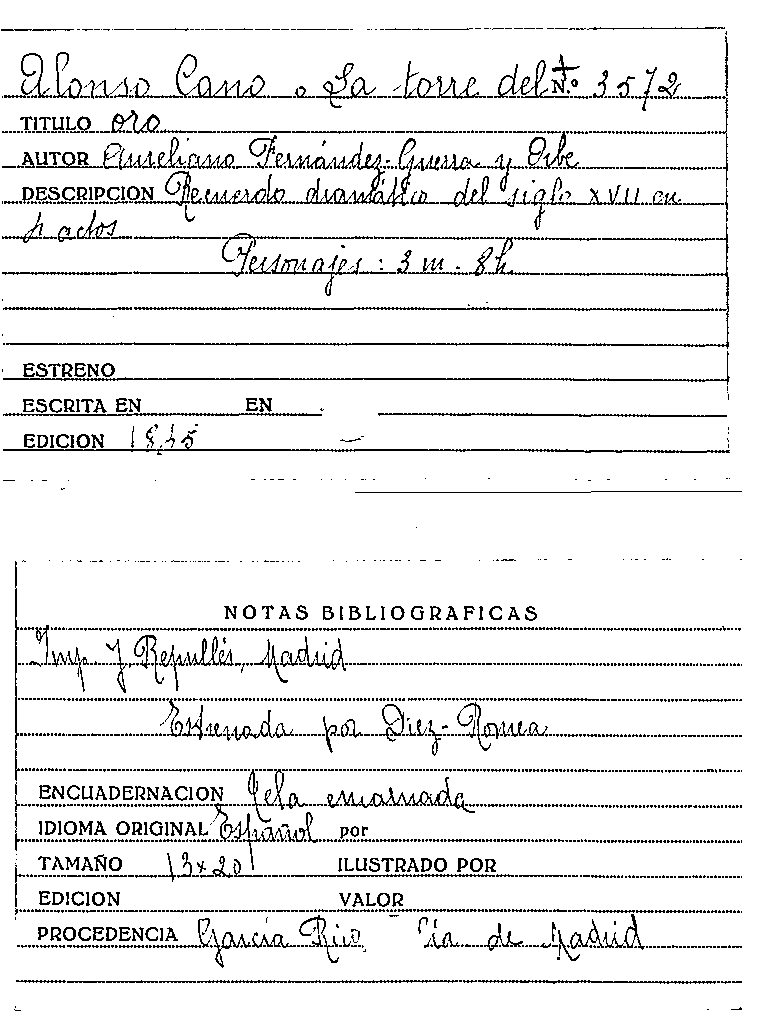 Alonso Cano o La torre del N.º 3572
TITULO oro
AUTOR Aureliano Fernández-Guerra y Orbe
DESCRIPCION Recuerdo dramático del siglo XVII en
4 actos
Personajes: 3 m. 8 h.
ESTRENO
ESCRITA EN EN
EDICION 1845
NOTAS BIBLIOGRAFICAS
Imp. J. Repullés, Madrid
Estrenada por Diez-Romea
ENCUADERNACION Tela encarnada
IDIOMA ORIGINAL Español por
TAMAÑO 13x20 ILUSTRADO POR
EDICION VALOR
PROCEDENCIA García Rico de Madrid